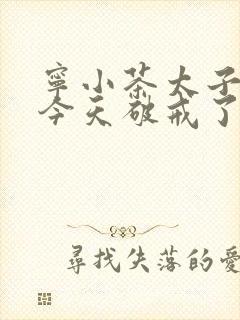 寧小茶太子
今天破戒了
尋找失落的愛